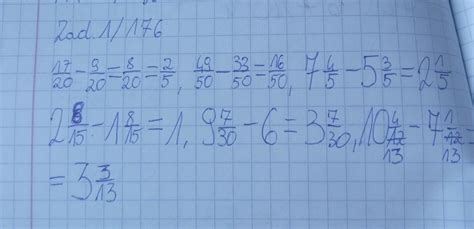 Zad. 1/176
17/20 - 9/20 = 8/20 = 2/5, 49/50 - 33/50 = 16/50, 7 4/5 - 5 3/5 = 2 1/5
2 8/15 - 1 8/15 = 1, 9 7/30 - 6 = 3 7/30, 10 4/13 - 7 1/13
= 3 3/13